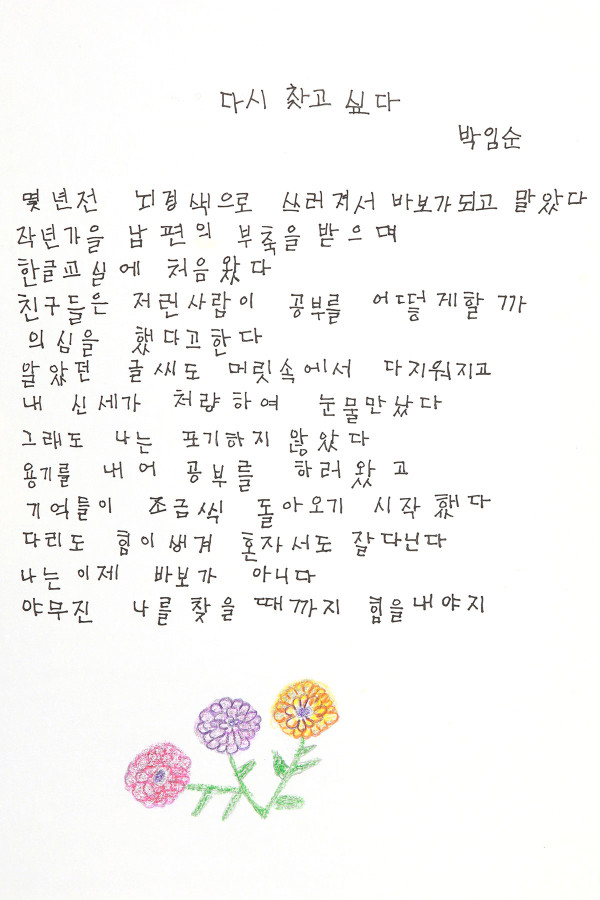 다시 찾고 싶다
박임순
몇년전 뇌경색으로 쓰러져서 바보가되고 말았다
작년가을 남편의 부축을 받으며
한글교실에 처음왔다
친구들은 저런사람이 공부를 어떻게할까
의심을 했다고한다
알았던 글씨도 머릿속에서 다지워지고
내 신세가 처량하여 눈물만났다
그래도 나는 포기하지 않았다
용기를 내어 공부를 하러왔고
기억들이 조금씩 돌아오기 시작했다
다리도 힘이생겨 혼자서도 잘다닌다
나는이제 바보가 아니다
야무진 나를 찾을 때까지 힘을내야지